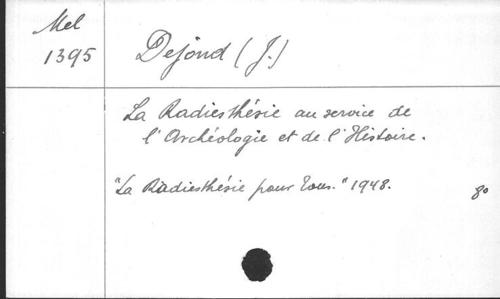 Mel
1395
Dejond (J.)
La Radiesthésie au service de
l'Archéologie et de l'Histoire.
"La Radiesthésie pour Tous." 1948.
8º